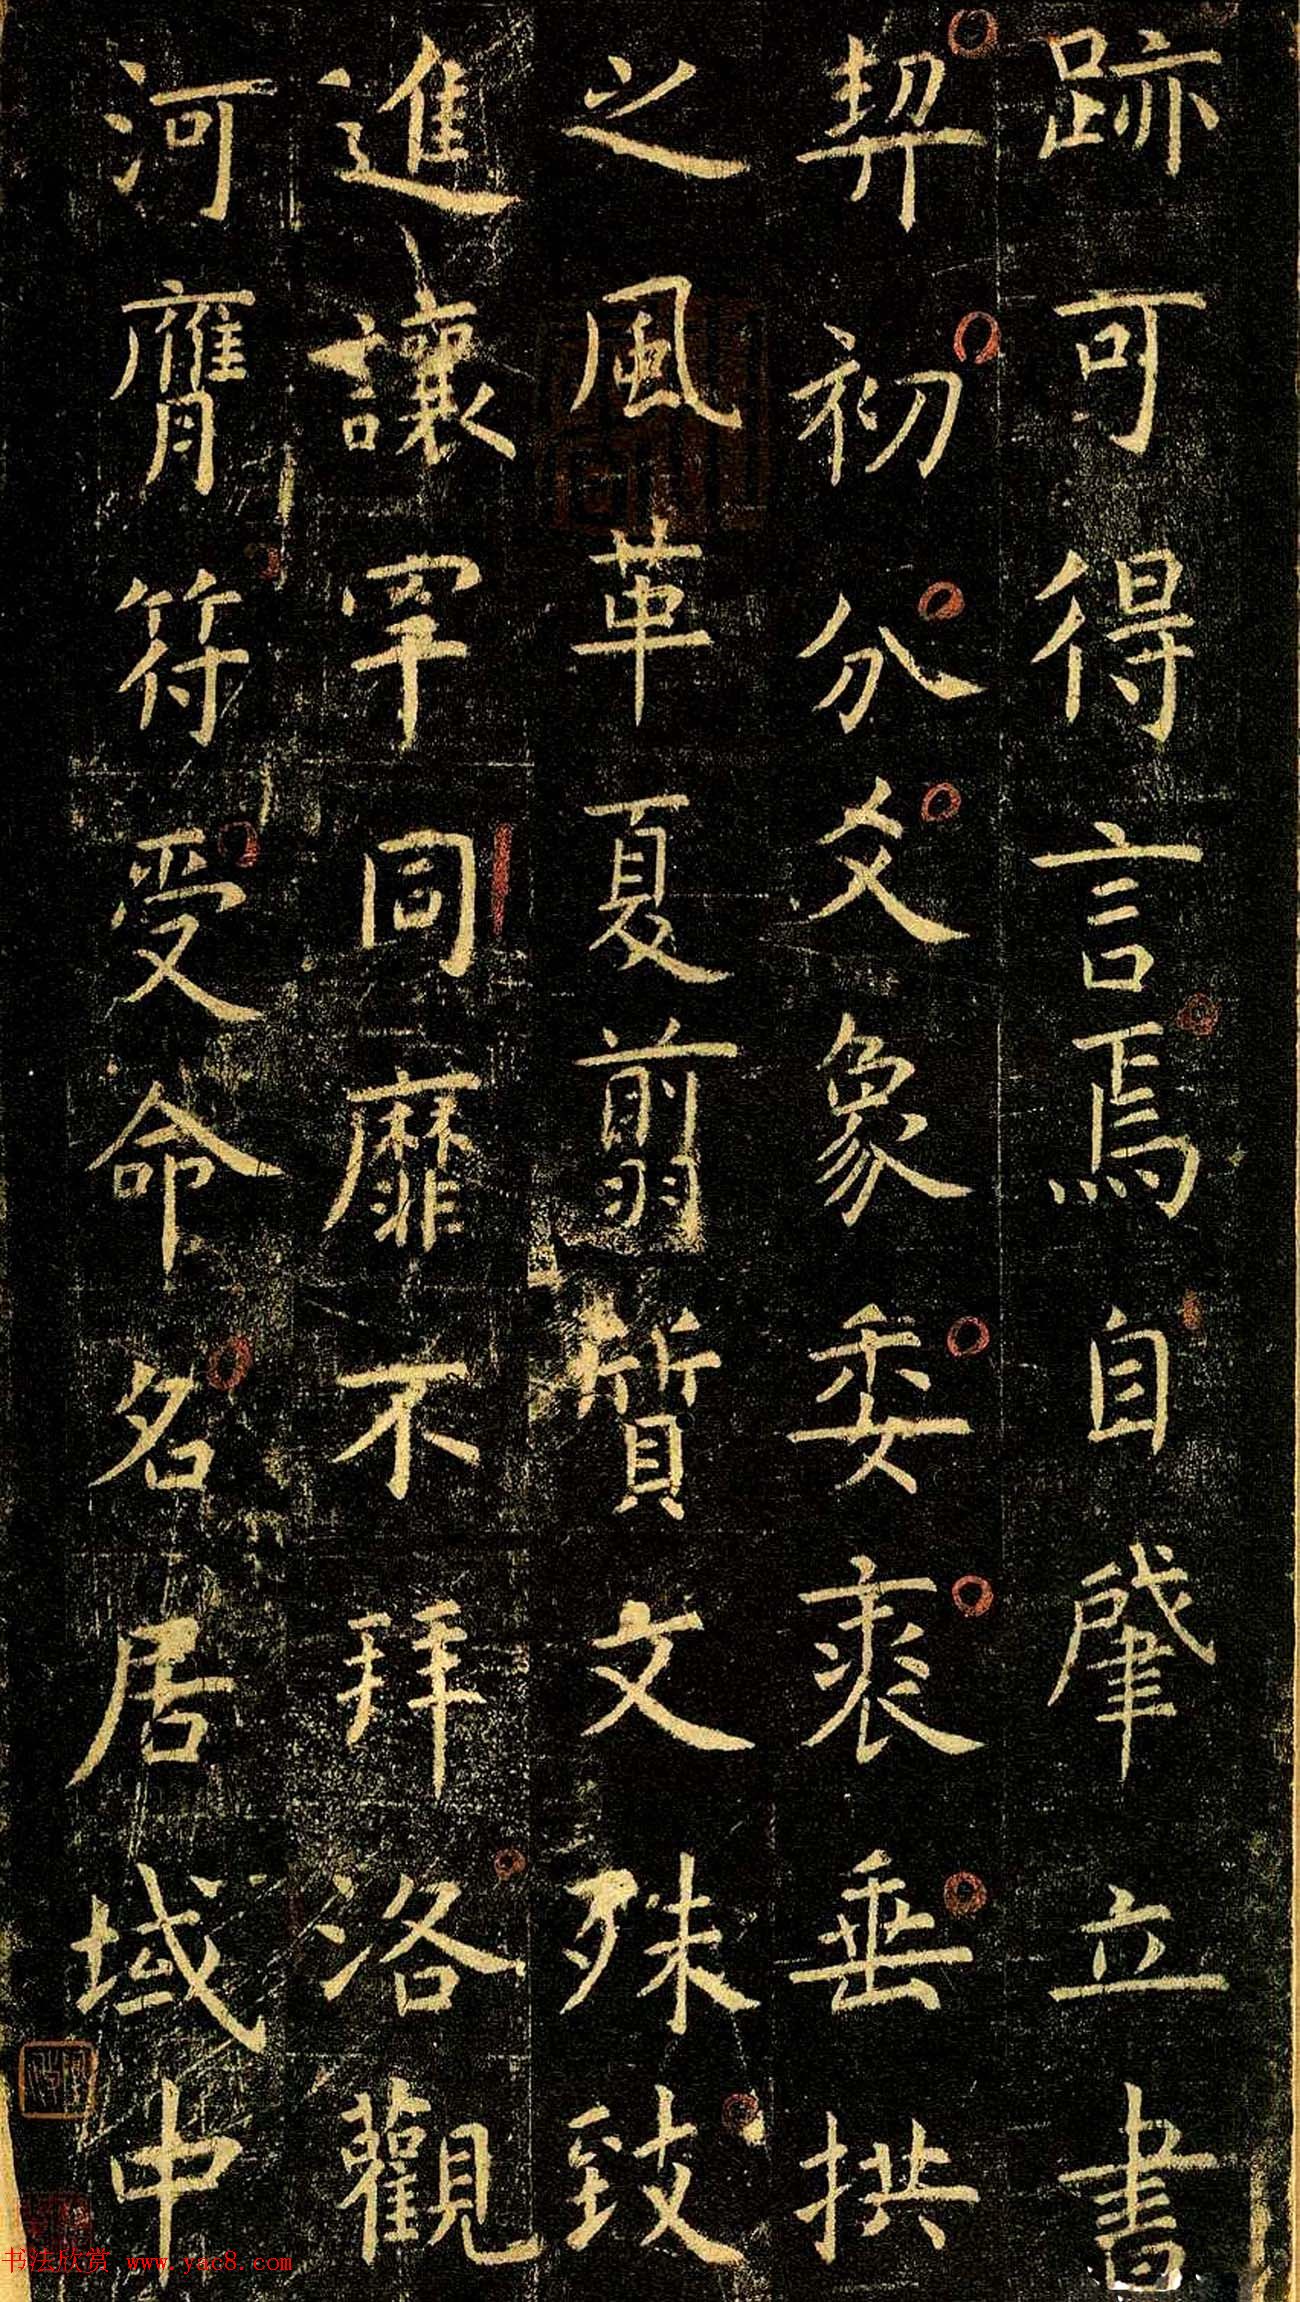 跡可得言焉自肇立書
契初分爻象委裘垂拱
之風革夏翦質文殊致
進讓罕同靡不拜洛觀
河膺符受命名居域中
书法欣赏 www.yac8.com